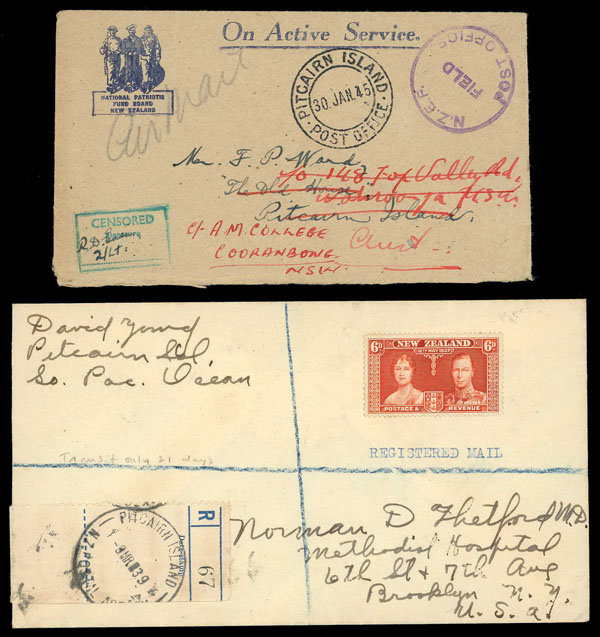 On Active Service.
NATIONAL PATRIOTIC
FUND BOARD
NEW ZEALAND
PITCAIRN ISLAND
30 JAN. 45
POST OFFICE
N.Z.E.F.
FIELD
POST OFFICE
Airmail
Mr. F. P. Ward
The Old House
Pitcairn Island
c/o 148 Fox Valley Rd.
Wahroonga NSW.
c/- A.M. COLLEGE
COORANBONG
NSW.
CENSORED
2/Lt.
David Young
Pitcairn Isl
So. Pac. Ocean
6D NEW ZEALAND 6D
12TH MAY 1937
POSTAGE & REVENUE
REGISTERED MAIL
Transit only 21 days
R
67
PITCAIRN ISLAND
N.Z. POST
Norman D Thetford M.D.
Methodist Hospital
6th St & 7th Ave
Brooklyn N.Y.
U.S.A.